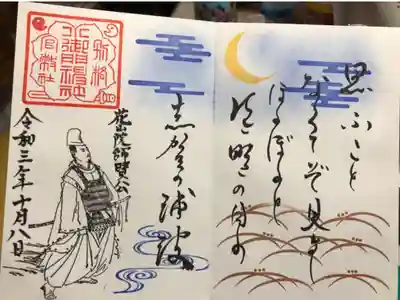 思ふこと
なくてぞ見まし
ほのぼのと
有明の月の
志賀の浦波
別格
小御門神社
官幣社
花山院師賢公
令和三年十月八日